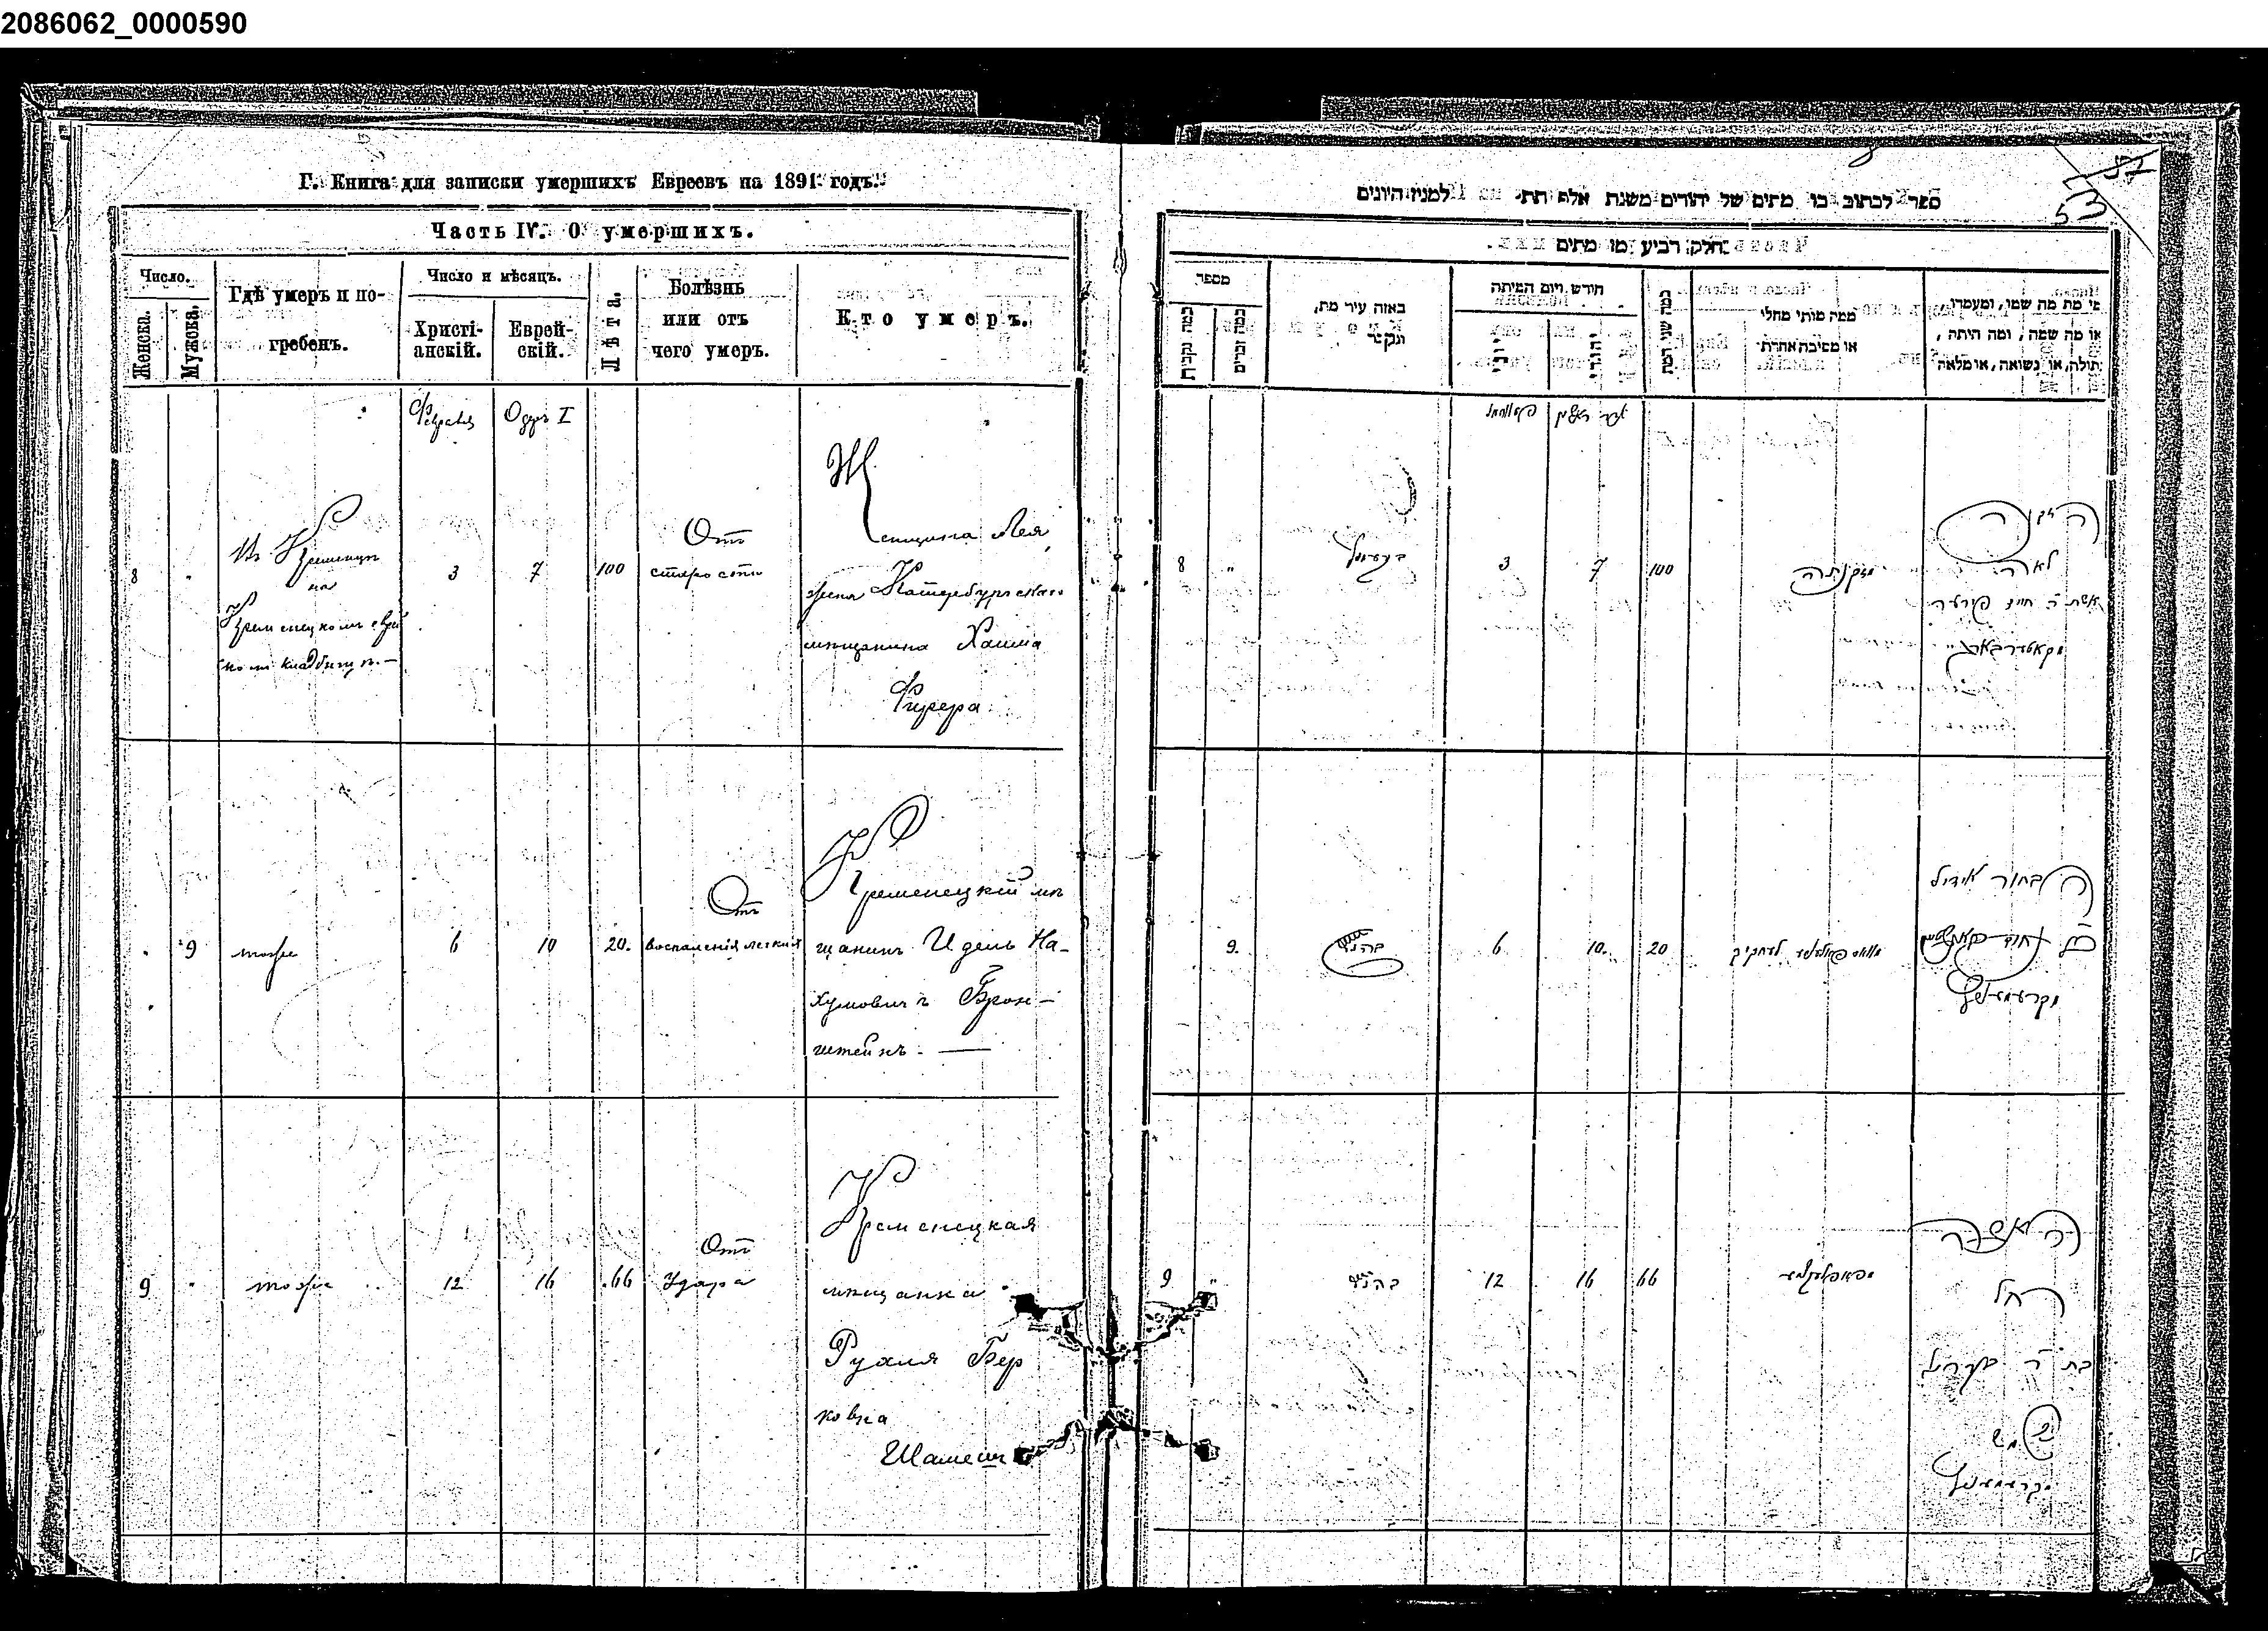 2086062_0000590
Г. Книга для записки умершихъ Евреевъ на 1891 годъ.
Часть IV. О умершихъ.
Число.
Женска.
Мужска.
Гдѣ умеръ и по-
гребенъ.
Число и мѣсяцъ.
Христі-
анскій.
Еврей-
скій.
Лѣта.
Болѣзнь
или отъ
чего умеръ.
Кто умеръ.
Февраля
Одръ I
8
Въ Кременцѣ
на
Кременецкомъ еврей
скомъ кладбищѣ.—
3
7
100
Отъ
старости
Женщина Лея
жена Катербургскаго
мѣщанина Хаима
Фурера
9
тоже
6
10
20.
Отъ
воспаленія легкихъ
Кременецкій мѣ
щанинъ Идель На-
хумовичъ Брон-
штейнъ. —
9
тоже
12
16
66
Отъ
Удара
Кременецкая
мѣщанка
Рухля Бер
ковна
Шамеш
57
53
ספר לכתוב בו מתים של יהודים משנת אלף תת למנין היונים
חלק רביע מו מתים
מספר
כמה נקבות
כמה זכרים
באזה עיר מת,
ונקבר
חודש ויום המיתה
יוני
יהודי
כמה שני דמת
ממה מותי מחלי
או מסיבה אחרת
מי מת מה שמו, ומעמדו
או מה שמה, ומה היתה,
בתולה, או נשואה, או מלאה
אדר ראשון
8
3
7
100
מזקנתה
הזקנה
לאה
אשת ר' חיים פורער
9.
6
10.
20
הבחור אידיל
9
12
16
66
האשה
רחל
בת ר'
שמש